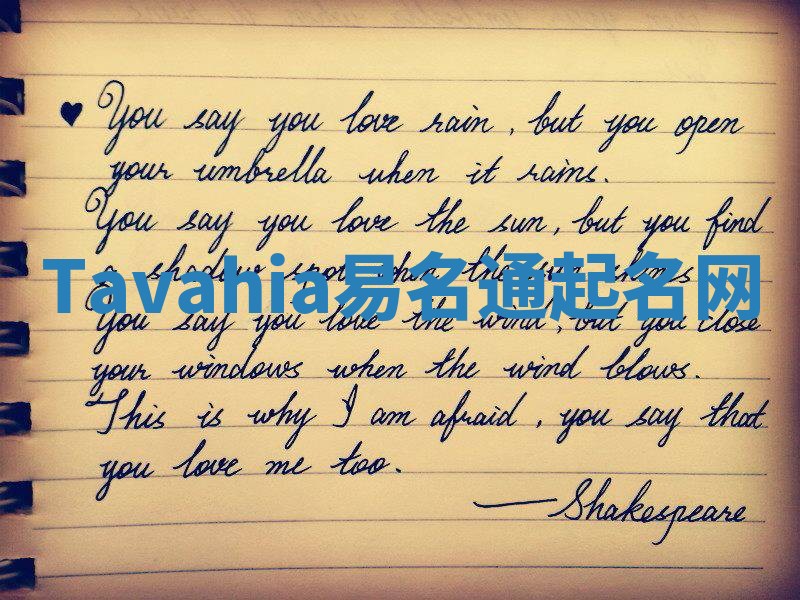 ♥ You say you love rain, but you open
your umbrella when it rains.
You say you love the sun, but you find
a shadow spot when the sun shines
Tavahia易名通起名网
You say you love the wind, but you close
your windows when the wind blows.
This is why I am afraid, you say that
you love me too.
—Shakespeare